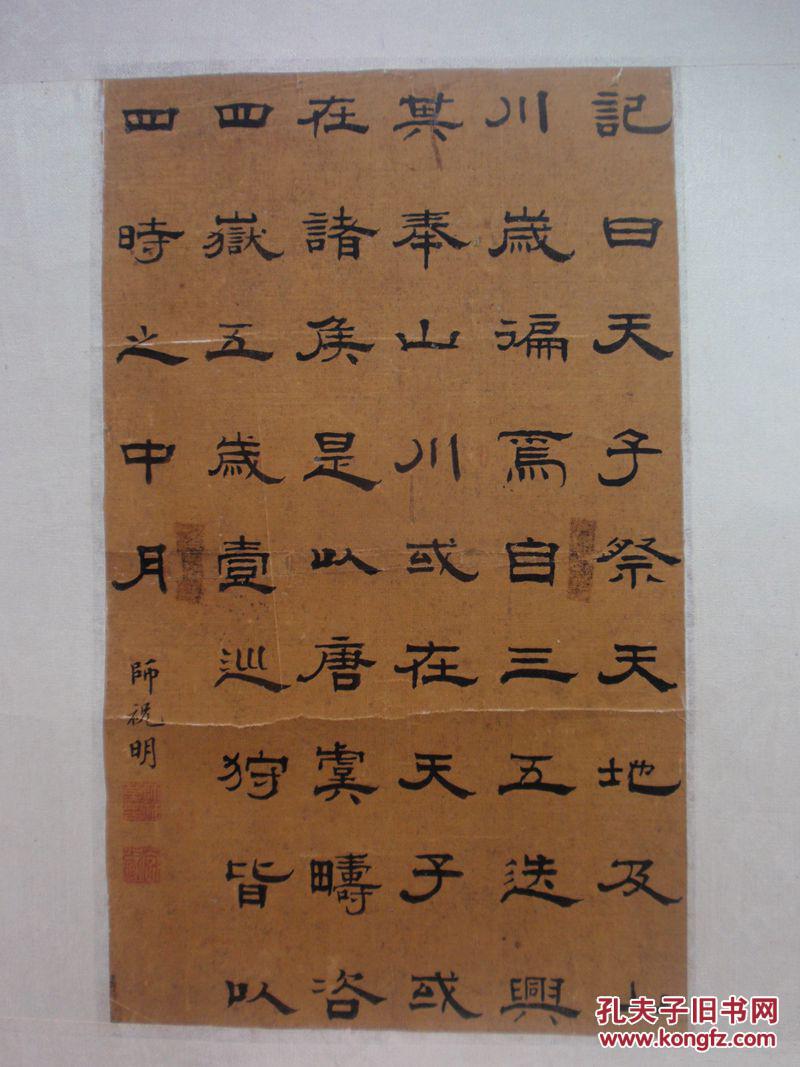 記曰天子祭天地及山
川歲徧焉自三五迭興
其奉山川或在天子或
在諸侯是以唐虞疇咨
四嶽五歲壹巡狩皆以
四時之中月
師祝明
孔夫子旧书网
www.kongfz.com